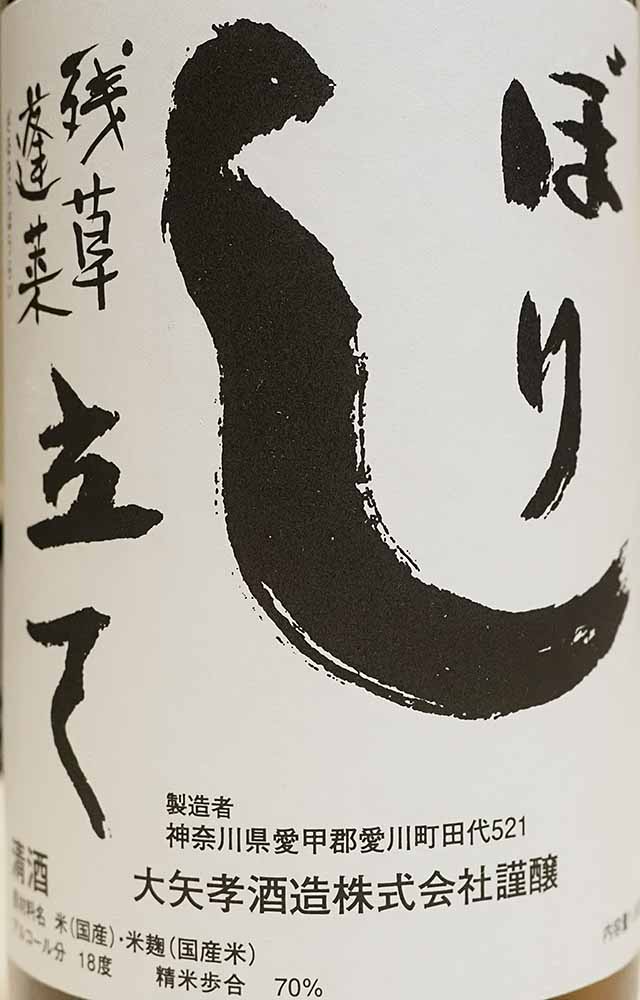 し
ぼり
立て
残草
蓬莱
製造者
神奈川県愛甲郡愛川町田代521
大矢孝酒造株式会社謹醸
清酒
原材料名 米(国産)・米麹(国産米)
アルコール分 18度 精米歩合 70%
内容量